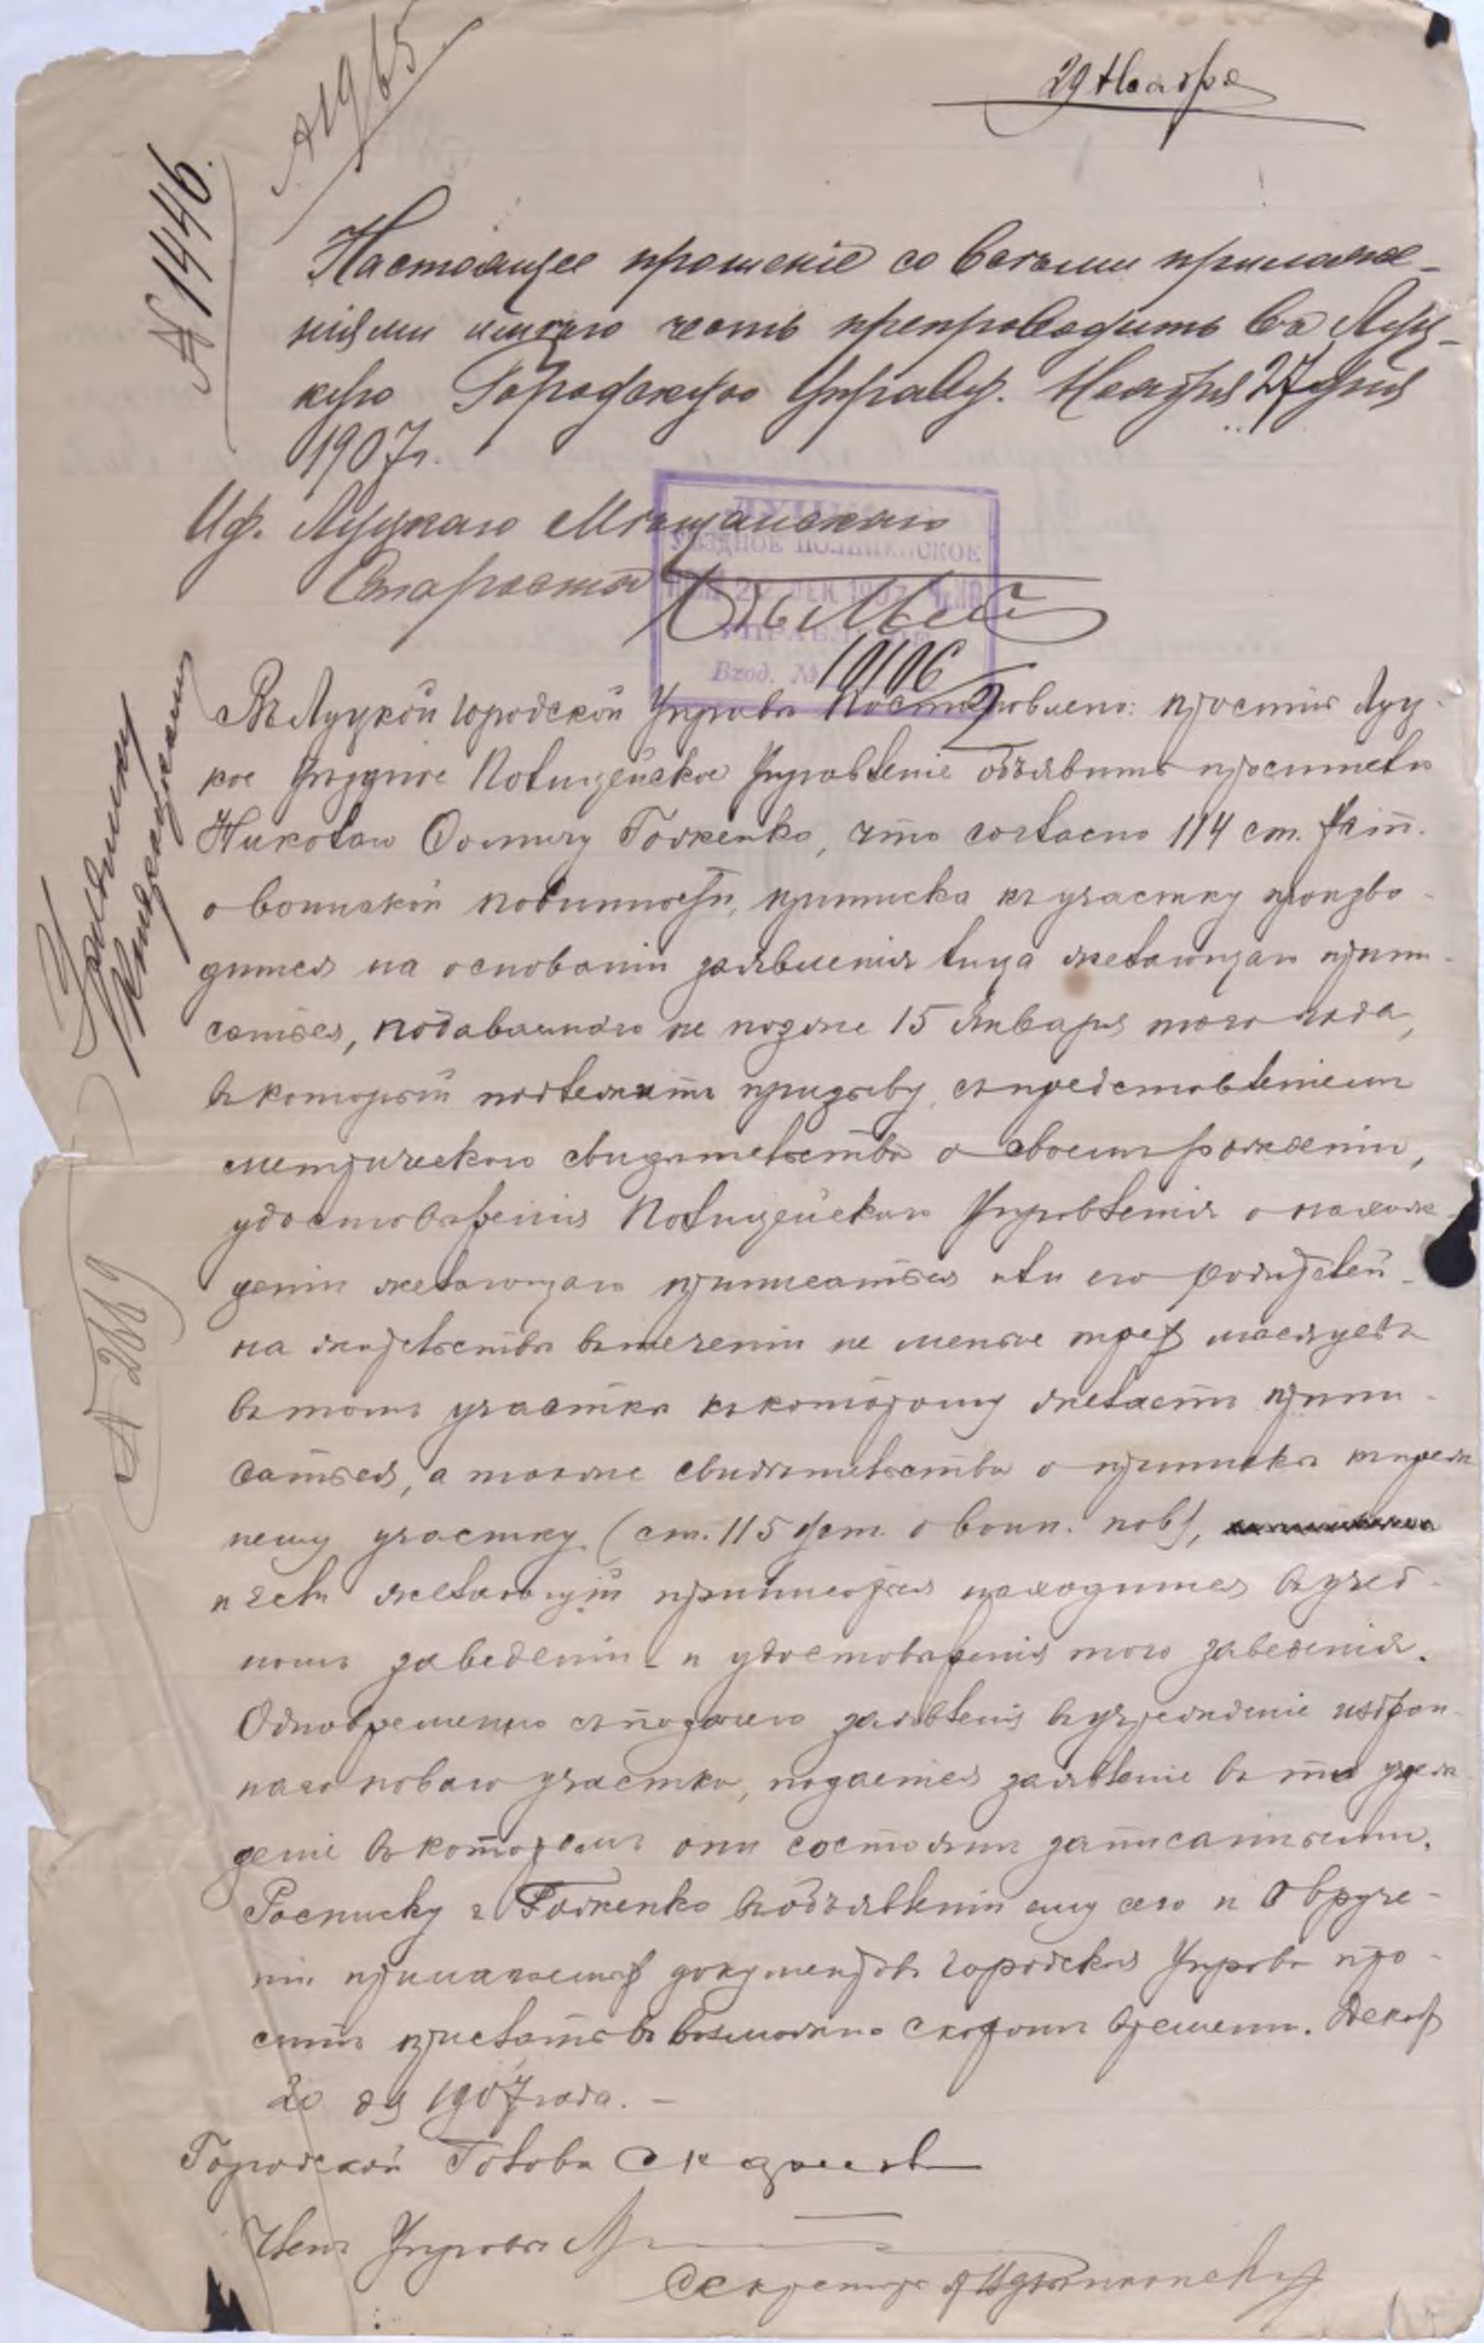 29 Ноября
№ 1446.
Настоящее прошеніе со всѣми приложе-
ніями имѣю честь препроводить въ Луц-
кую Городскую Управу. Ноября 27 дня
1907 г.
Иф. Луцкаго Мѣщанскаго
Старосты
УѢЗДНОЕ ПОЛИЦЕЙСКОЕ
УПРАВЛЕНІЕ
Вход. № 10106
Въ Луцкой городской Управѣ Постановлено: просить Луц-
кое Уѣздное Полицейское Управленіе объявить просителю
Николаю Гоженко, что согласно 114 ст. Уст.
о воинской повинности, приписка къ участку произво-
дится на основаніи заявленія лица желающаго припи-
саться, подаваемаго не позже 15 Января того года,
въ который подлежитъ призыву, съ представленіемъ
метрическаго свидѣтельства о своемъ рожденіи,
удостовѣренія Полицейскаго Управленія о нахож-
деніи желающаго приписаться или его родителей
на жительствѣ втеченіи не менѣе трехъ мѣсяцевъ
въ томъ участкѣ къ которому желаетъ припи-
саться, а также свидѣтельства о припискѣ къ преж-
нему участку (ст. 115 Уст. о воин. пов.),
и если желающій приписаться находится въ учеб-
номъ заведеніи и удостовѣренія того заведенія.
Одновременно съ подачею заявленія въ учрежденіе избран-
наго новаго участка, подается заявленіе въ то учреж-
деніе въ которомъ они состоятъ записанными.
Росписку г. Гоженко въ объявленіи ему сего и о вруче-
ніи прилагаемыхъ документовъ городская Управа про-
ситъ прислать въ возможно скоромъ времени. Декабр
20 дня 1907 года. -
Городской Голова
Членъ Управы
Секретарь
№ 2669